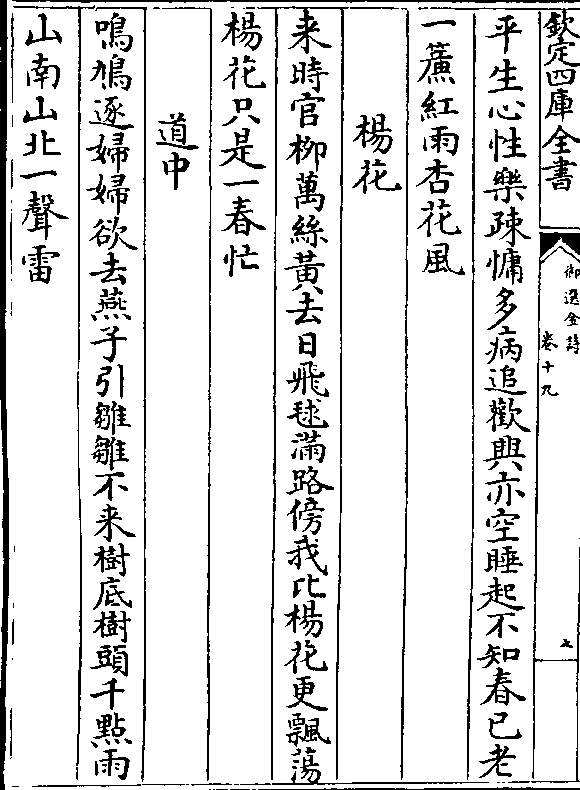 欽定四庫全書
御選金詩
卷十九
平生心性樂疎慵多病追歡興亦空睡起不知春已老
一簾紅雨杏花風
楊花
来時官柳萬絲黃去日飛毬滿路傍我比楊花更飄蕩
楊花只是一春忙
道中
鳴鳩逐婦婦欲去燕子引雛雛不来樹底樹頭千點雨
山南山北一聲雷